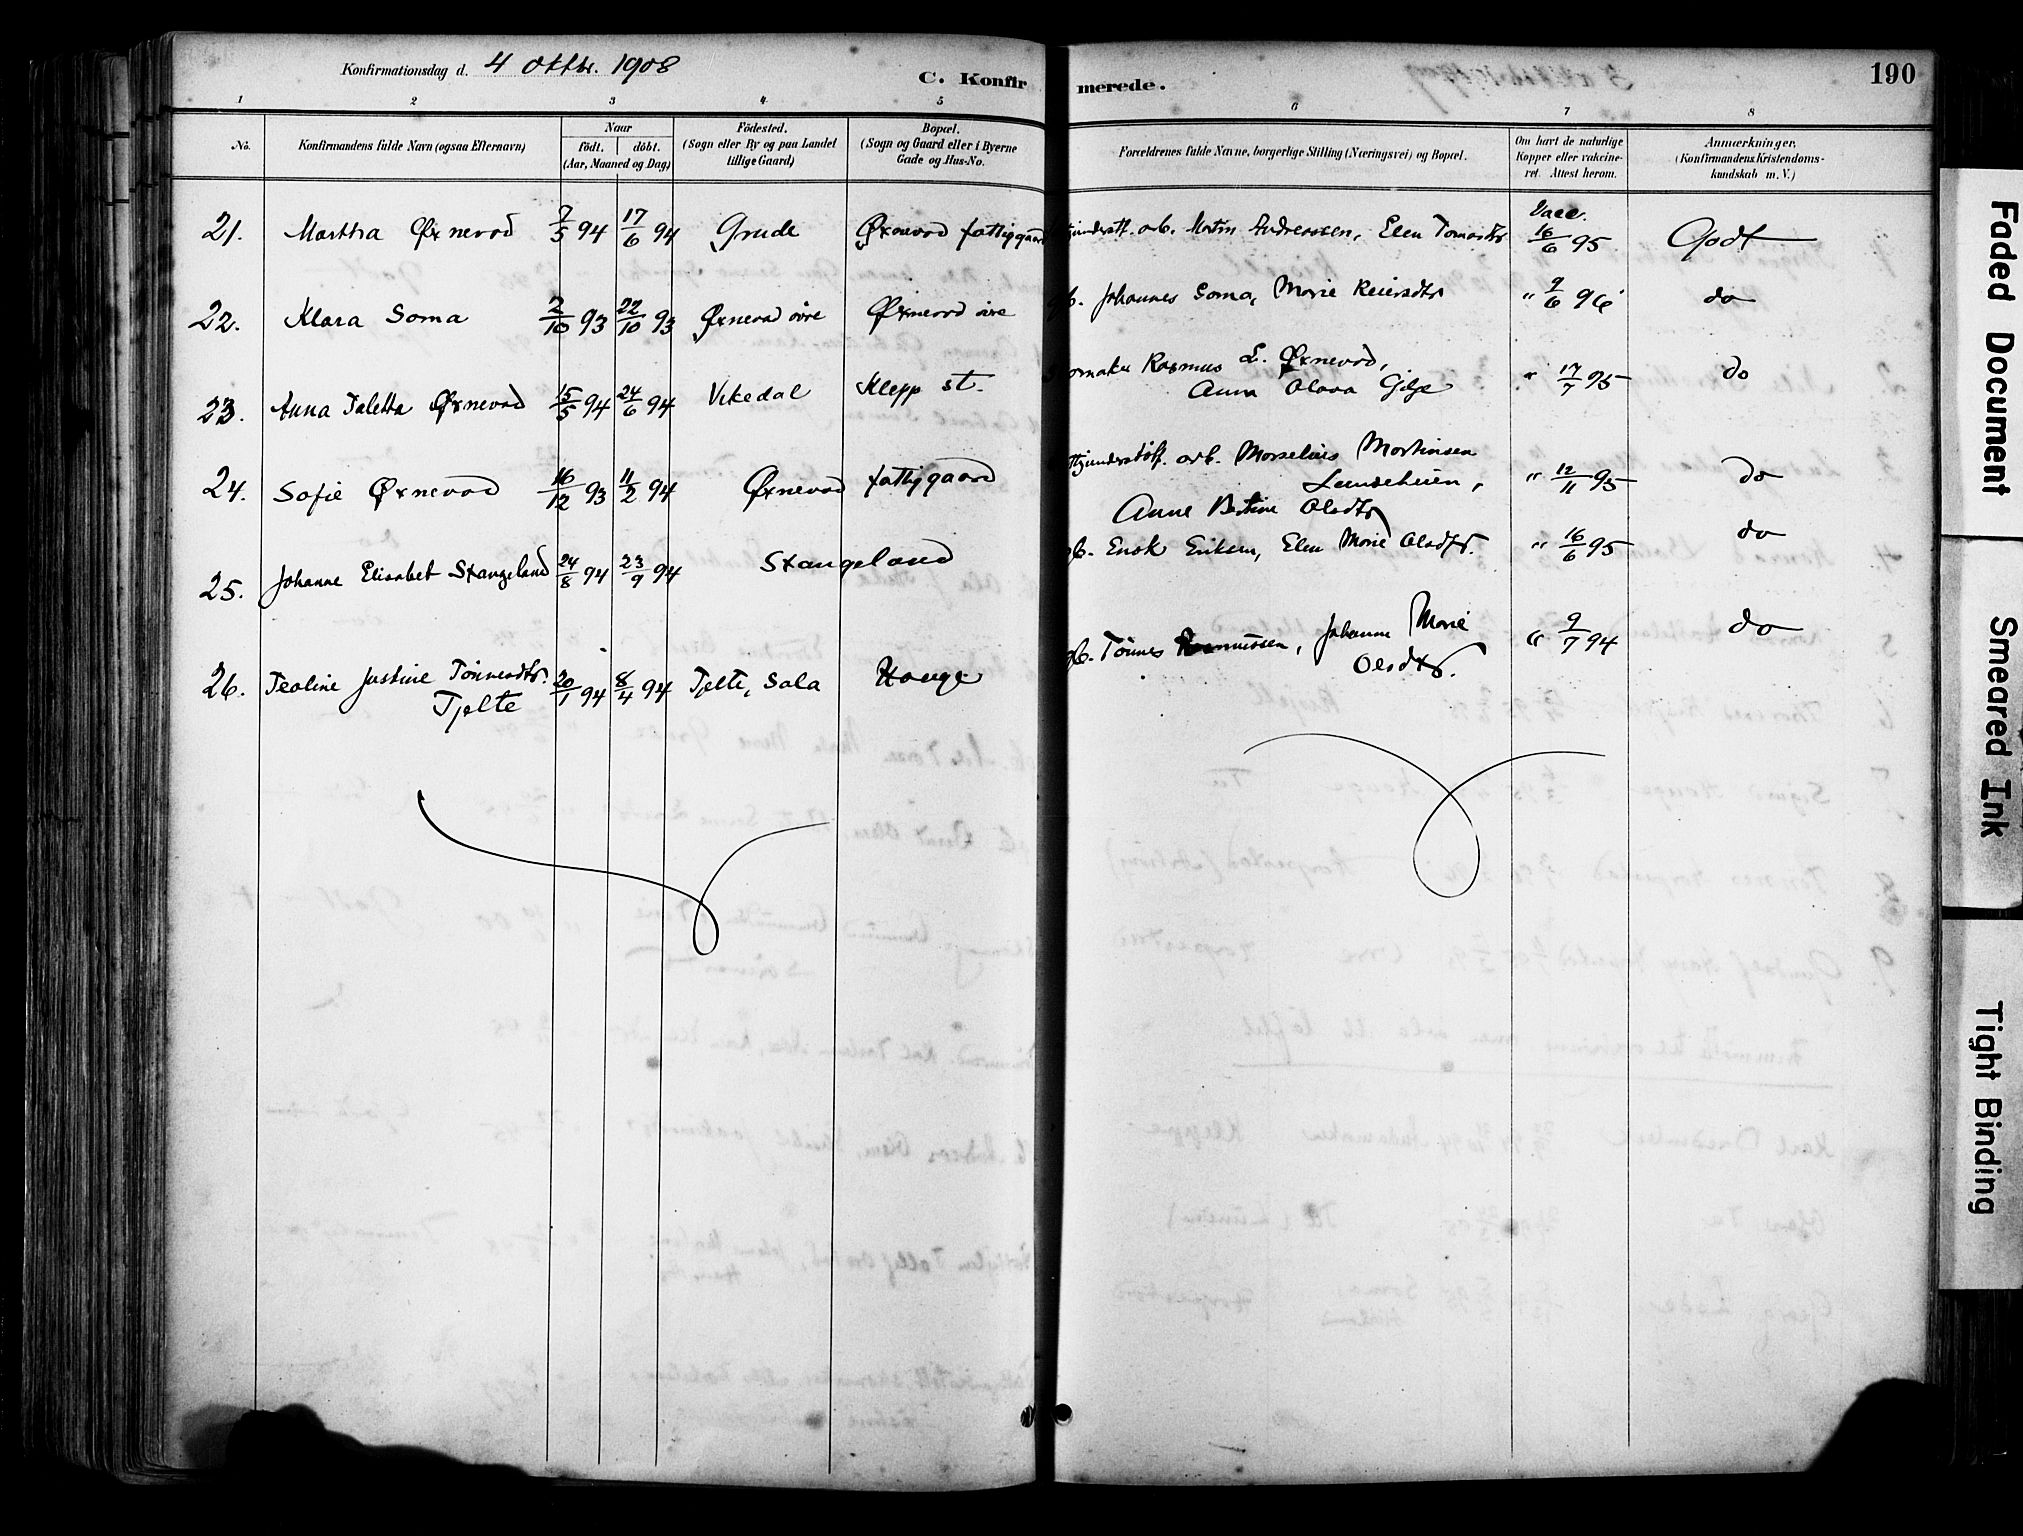 Konfirmationsdag d. 4 Oktbr. 1908
C. Konfirmerede.
190
1 2 3 4 5 6 7 8
No.
Konfirmandens fulde Navn (ogsaa Efternavn)
Naar
födt. döbt.
(Aar, Maaned og Dag)
Födested.
(Sogn eller By og paa Landet
tillige Gaard)
Bopæl.
(Sogn og Gaard eller i Byerne
Gade og Hus-No.
Forældrenes fulde Navne, borgerlige Stilling (Næringsvei) og Bopæl.
Om havt de naturlige
Kopper eller vakcine-
ret. Attest herom.
Anmærkninger.
(Konfirmandens Kristendoms-
kundskab m. V.)
21. Martha Øxnevad 7/5 94 17/6 94 Grude Øxnevad fattiggaard arb. Martin Andreassen, Elen Tomasdtr Vacc. 16/6 95 Godt
22. Klara Soma 2/10 93 22/10 93 Øxnevad övre Øxnevad övre gb. Johannes Soma, Marie Reiersdtr " 9/6 96 do
23. Anna Taletta Øxnevad 15/5 94 24/6 94 Vikedal Klepp st. Rasmus L. Øxnevad,
Anna Olava Gilje " 17/7 95 do
24. Sofie Øxnevad 16/12 93 11/2 94 Øxnevad fattiggaard arb. Marselius Martinsen
Lundeheien,
Anne Bertine Olsdtr " 12/11 95 do
25. Johanne Elisabet Stangeland 24/8 94 23/9 94 Stangeland gb. Enok Eriksen, Elen Marie Olsdtr. " 16/6 95 do
26. Teoline Justine Tönnesdtr.
Tjelte 20/1 94 8/4 94 Tjelte, Sola Hauge gb. Tönnes Rasmussen, Johanne Marie
Olsdtr. " 9/7 94 do
Faded Document
Smeared Ink
Tight Binding